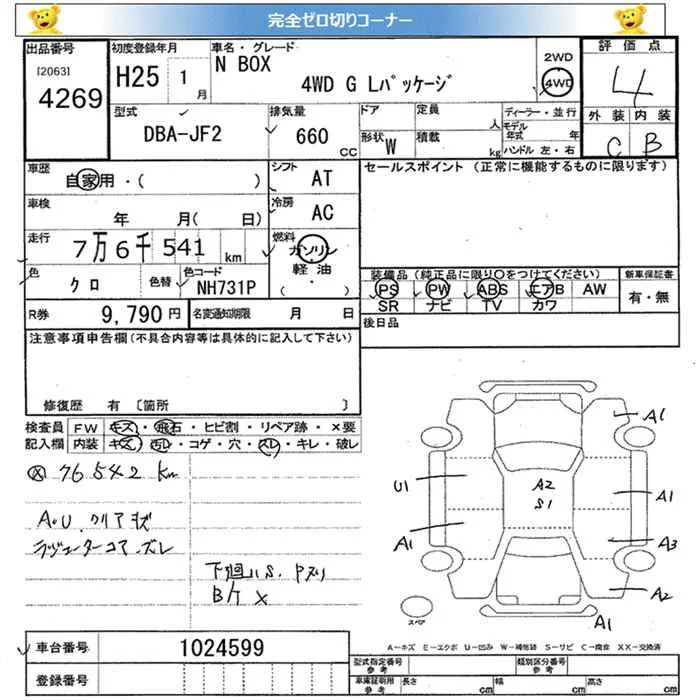 完全ゼロ切りコーナー
出品番号
[2063]
4269
初度登録年月
H25 1月
車名・グレード
N BOX
4WD G Lパッケージ
2WD
4WD
評価点
4
外装 内装
C B
型式
DBA-JF2
排気量
660 CC
ドア
形状 W
定員 人
積載 kg
ディーラー・並行
モデル年式 年
ハンドル 左・右
車歴
自家用・( )
シフト
AT
セールスポイント(正常に機能するものに限ります)
車検
年 月( 日)
冷房
AC
走行
7万6千541 km
燃料
ガソリン
軽油
( ・ )
色
クロ
色替
色コード
NH731P
装備品(純正品に限り○をつけてください)
PS PW ABS エアB AW
SR ナビ TV カワ
新車保証書
有・無
R券
9,790円
名変通知期限 月 日
後日品
注意事項申告欄(不具合内容等は具体的に記入して下さい)
修復歴 有 〔箇所 〕
検査員記入欄
FW キズ・飛石・ヒビ割・リペア跡・×要
内装 キズ・汚レ・コゲ・穴・スレ・キレ・破レ
76542 km
A・U クリア
ラジエーターコア ズレ
下廻リ S. Pヌリ
B/T ×
A1
U1
A2
S1
A1
A1
A3
A2
A1
スペア
A－キズ E－エクボ U－凹み W－補修跡 S－サビ C－腐食 XX－交換済
車台番号
1024599
登録番号
型式指定番号 参考
類別区分番号 参考
車庫証明用 参考
長さ cm
幅 cm
高さ cm